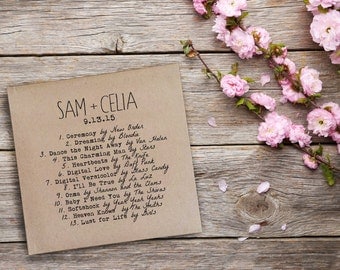 SAM + CELIA
9.13.15
1. Ceremony by New Order
2. Dreaming by Blondie
3. Dance the Night Away by Van Halen
4. This Charming Man by Stars
5. Heartbeats by The Knife
6. Digital Love by Daft Punk
7. Digital Versicolor by Glass Candy
8. I'll Be True by La Luz
9. Ooma by Shannon and the Clams
10. Baby I Need You by The
11. Softshock by Yeah Yeah Yeahs
12. Heaven by The
13. Lust for Life by Girls